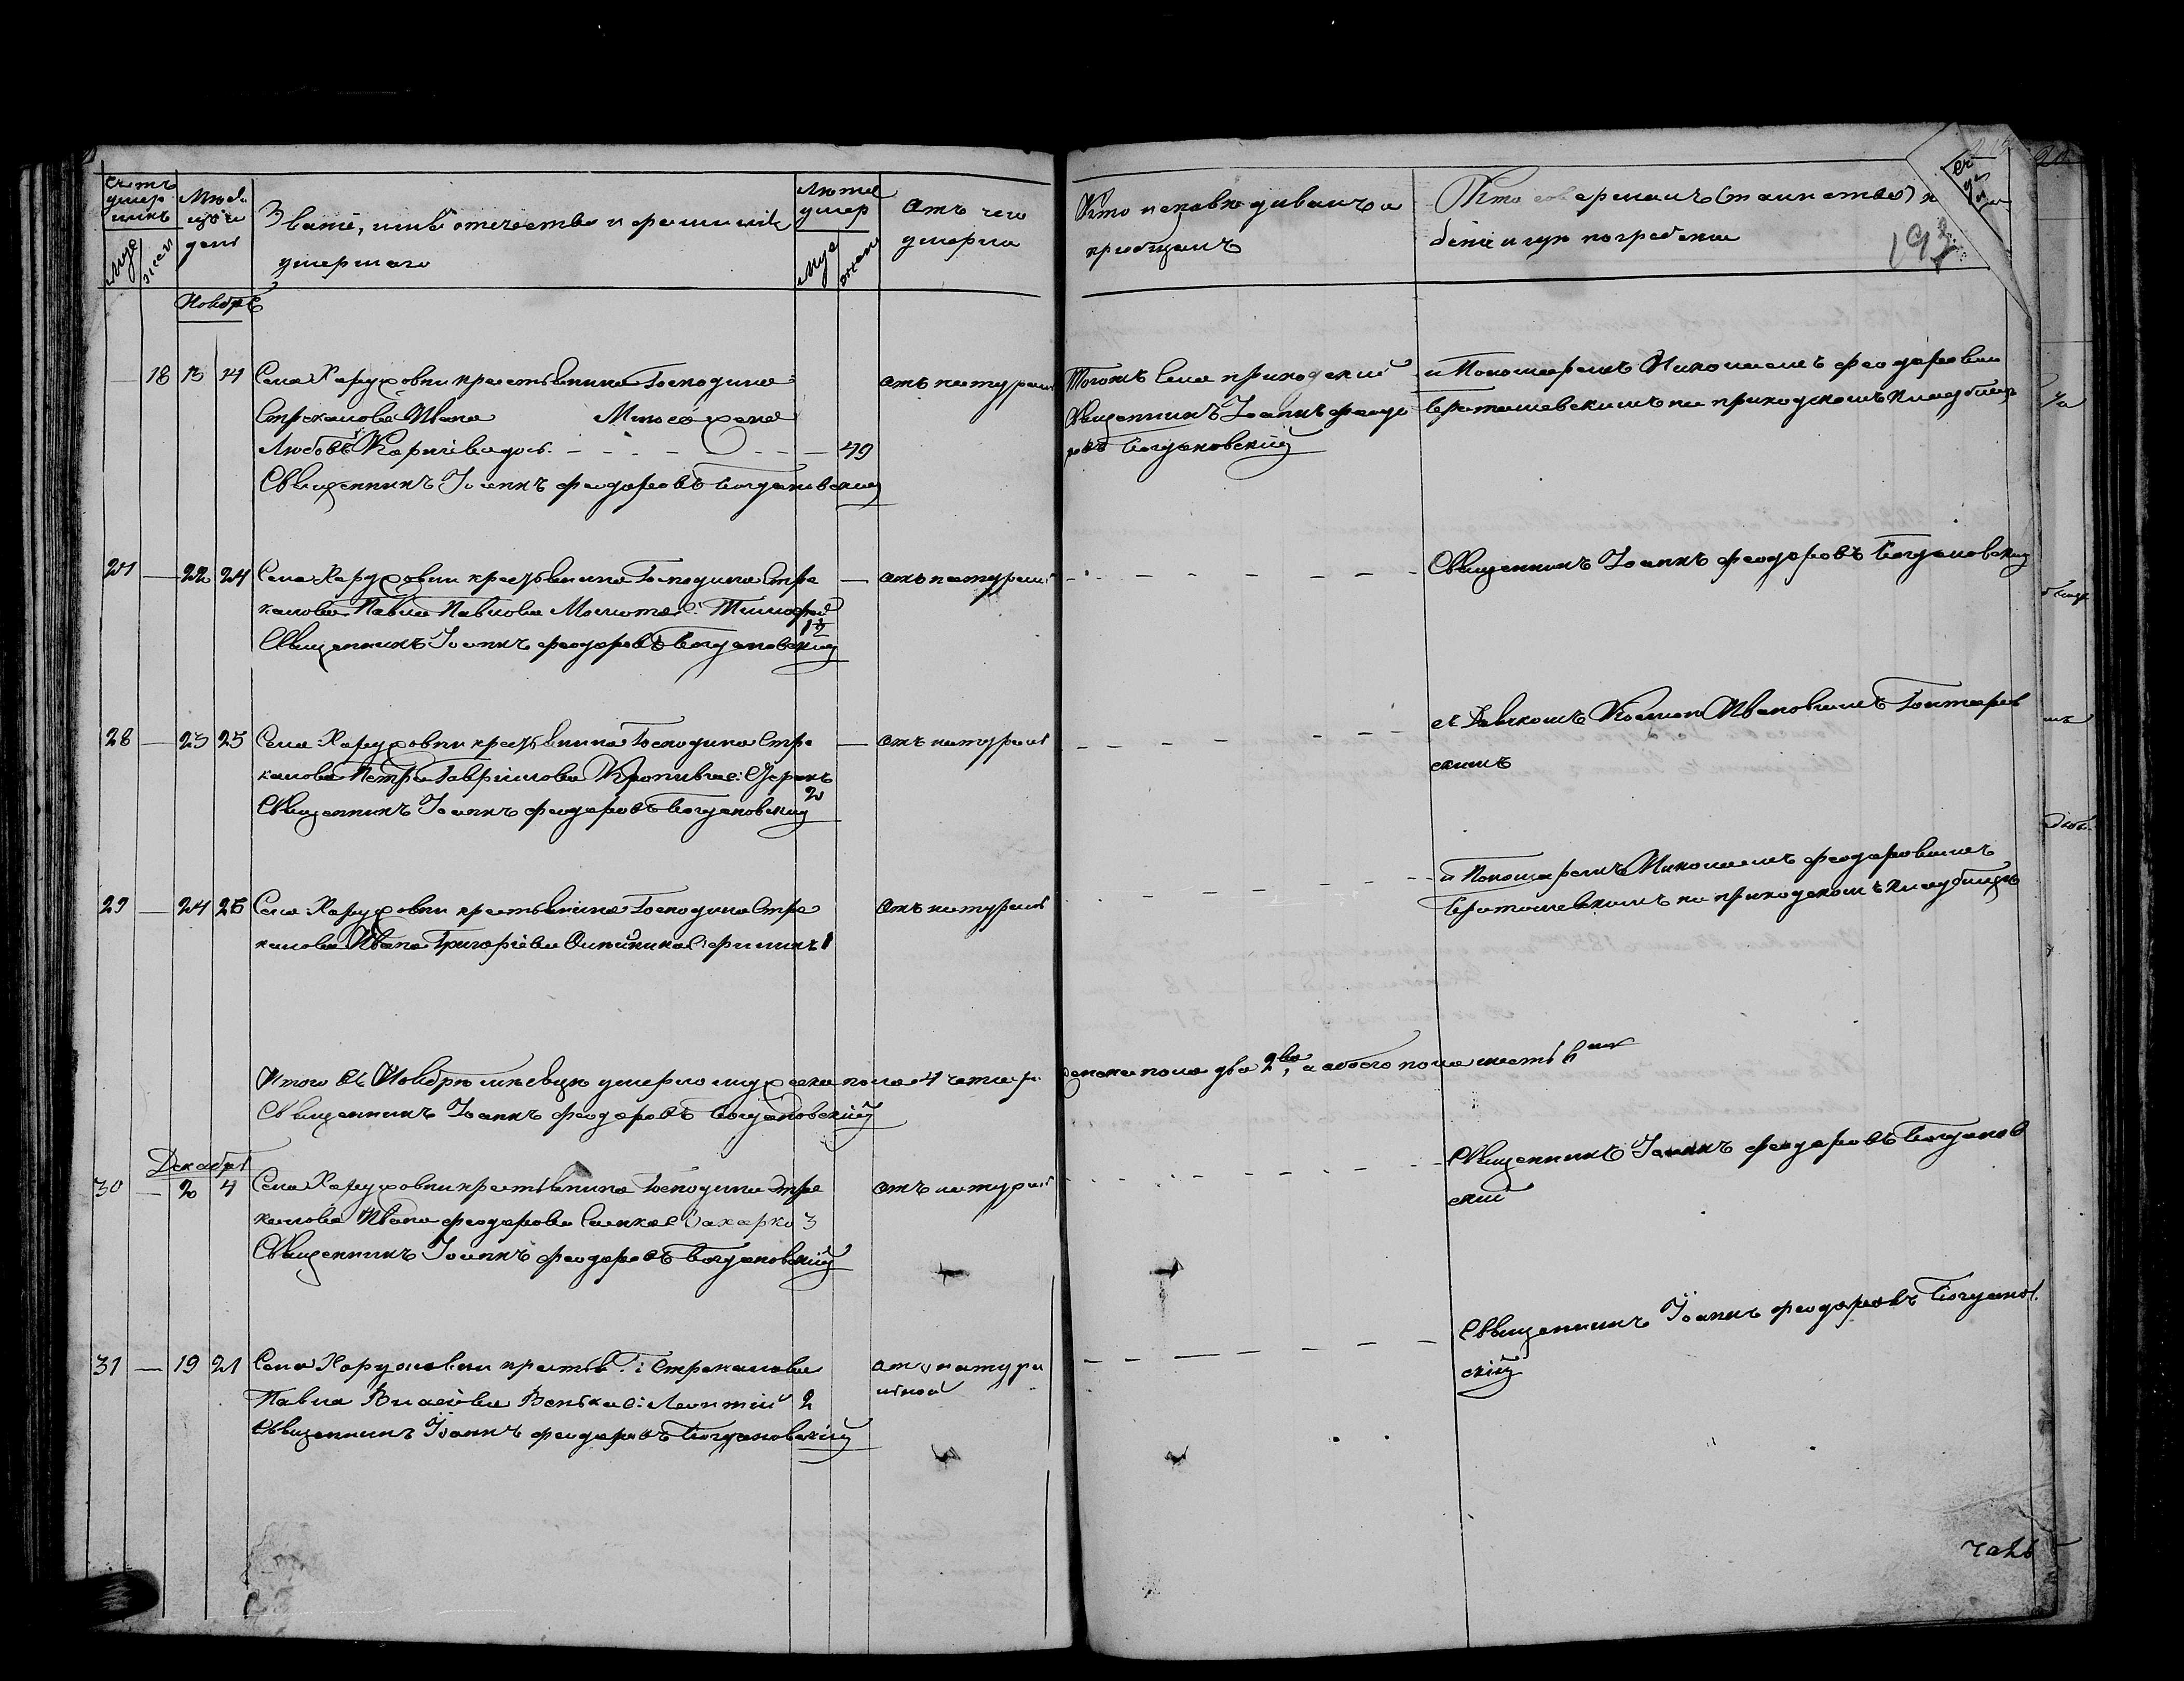 Счетъ умершихъ
Муж
жен
Месяць и день
Званіе, имя отечество и фамилія
умершаго
Лета умер
Муж
жен
Отъ чего
умерли
Кто исповѣдивалъ и
пріобщалъ
Кто совершалъ (таинство) и
193
Ноябрь
18 13 14 Села Харуховки крестьянина Господина
Стрекалова Ивана жена
Любовъ 49
Священникъ Іоаннъ Феодоровъ Богдановскій
отъ натураль
Тогожъ села приходский
Священникъ Іоаннъ Феодо
ровъ Богдановскій
и Пономаремъ Николаемъ Феодоровим
Братошевскимъ на приходскомъ кладбище
27 — 22 24 Села Харуховки крестьянина Господина Стре
калова Павла Павлова с: Тимофей
1½
Священникъ Іоаннъ Феодоровъ Богдановскій
— отъ натураль
Священникъ Іоаннъ Феодоровъ Богдановскій
28 — 23 25 Села Харуховки крестьянина Господина Стре
калова Петра Гаврилова Кропивы с:
2
Священникъ Іоаннъ Феодоровъ Богдановскій
— отъ натураль
съ Дьячкомъ Ивановимъ Гонтарев
скимъ
29 — 24 26 Села Харуховки крестьянина Господина Стре
калова Ивана Григоріева с: Филипъ 1
отъ натураль
и Пономаремъ Николаемъ Феодоровимъ
Братошевскимъ на приходскомъ кладбищѣ
Итого въ Ноябрѣ мѣсяцѣ умерло мужеска пола 4 четыри женска пола два 2ва, а обоего пола шесть 6ть
Священникъ Іоаннъ Феодоровъ Богдановскій
Декабрь
30 — 2 4 Села Харуховки крестьянина Господина Стре
калова Ивана Феодорова с Захарко 3
Священникъ Іоаннъ Феодоровъ Богдановскій
отъ натураль
Священникъ Іоаннъ Феодоровъ Богданов
скій
31 — 19 21 Села Харуховки крестьян. Г: Стрекалова
Павла Власіева с: Леонтій 2
Священникъ Іоаннъ Феодоровъ Богдановскій
отъ натура
льной
Священникъ Іоаннъ Феодоровъ Богданов
скій
часть